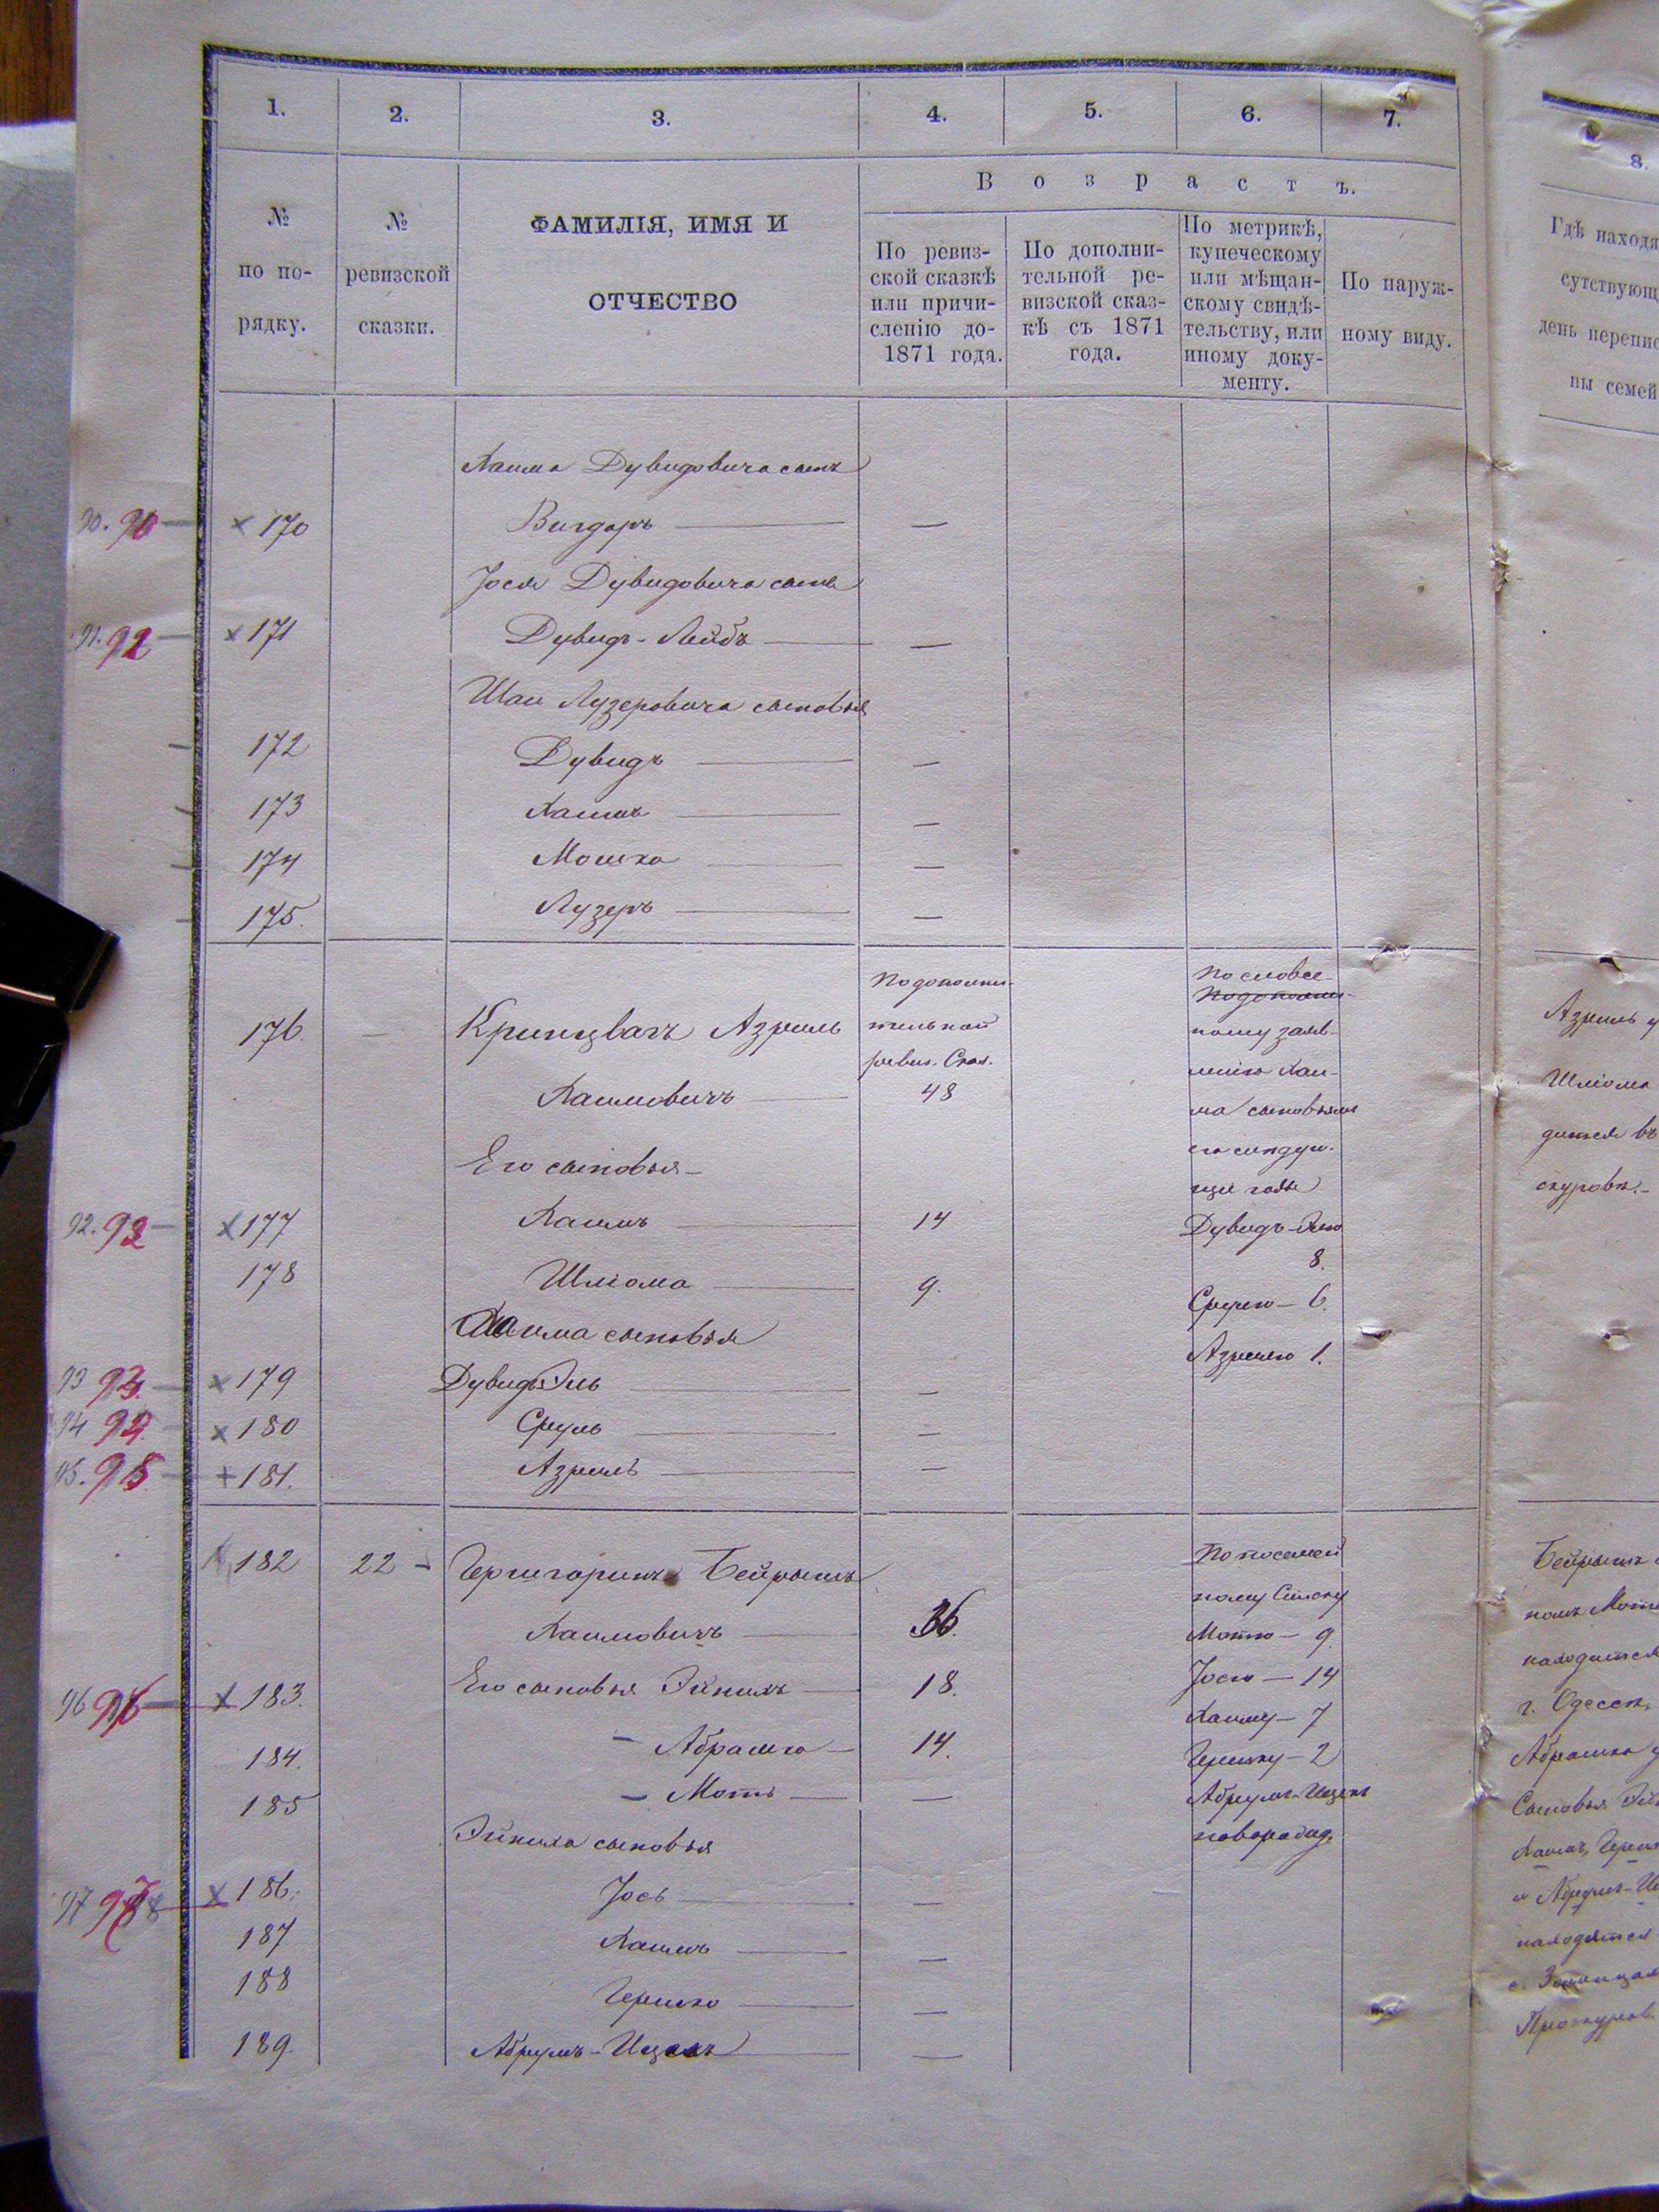 1. 2. 3. 4. 5. 6. 7.
В о з р а с т ъ.
№ по по-рядку.
№ ревизской сказки.
ФАМИЛІЯ, ИМЯ И
ОТЧЕСТВО
По ревиз-
ской сказкѣ
или причи-
сленію до-
1871 года.
По дополни-
тельной ре-
визской сказ-
кѣ съ 1871
года.
По метрикѣ,
купеческому
или мѣщан-
скому свидѣ-
тельству, или
иному доку-
менту.
По наруж-
ному виду.
Хаима Дувидовича сынъ
90. 91 — × 170 Вигдоръ — —
Іося Дувидовича сынъ
91. 92 — × 171 Дувидъ-Лейбъ — —
Шаи Лузеровича сыновья
172 Дувидъ — —
173 Хаимъ — —
174 Мошко — —
175. Лузеръ — —
176. — Кринцвагъ Азриль
Хаимовичъ —
По дополни-
тельной
ревиз. Сказ.
48
По словес-
По дополни-
ному заяв-
ленію Хаи-
ма сыновьямъ
его слѣдую-
щіе годы
Дувидъ-Элю
8.
Срулю — 6.
Азрилю 1.
Его сыновья —
92. 93 — × 177 Хаимъ — 14
178 Шліома — 9.
Хаима сыновья
93 — × 179 Дувидъ Эль — —
94 — × 180 Сруль — —
95. — + 181. Азриль — —
182 22 — Бейрышъ
Хаимовичъ — 36.
По посемей
ному Списку
Мотю — 9
Іосю — 14
Хаиму — 7
Гершку — 2
Абрумъ-Ицекъ
новорожд.
96 — × 183. Его сыновья — 18.
184. — Абрамко — 14.
185 — Моть — —
сыновья
97 × 186. Іось — —
187 Хаимъ — —
188 Гершко — —
189 Абрумъ-Ицекъ — —
8.
Гдѣ находя
сутствующ
день перепис
ны семей
Азриль
Шліома
дится въ
скуровѣ.-
Бейрышъ
номъ Моте
находится
г. Одессѣ,
Абрамко
Сыновья
Хаимъ, Герш
и Абрумъ-Иц
находятся
Проскуров.